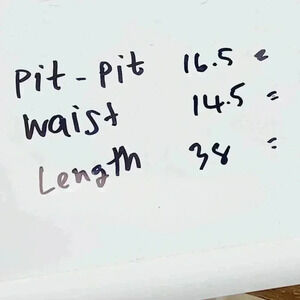 Pit - Pit 16.5 "
Waist 14.5 "
Length 38 "